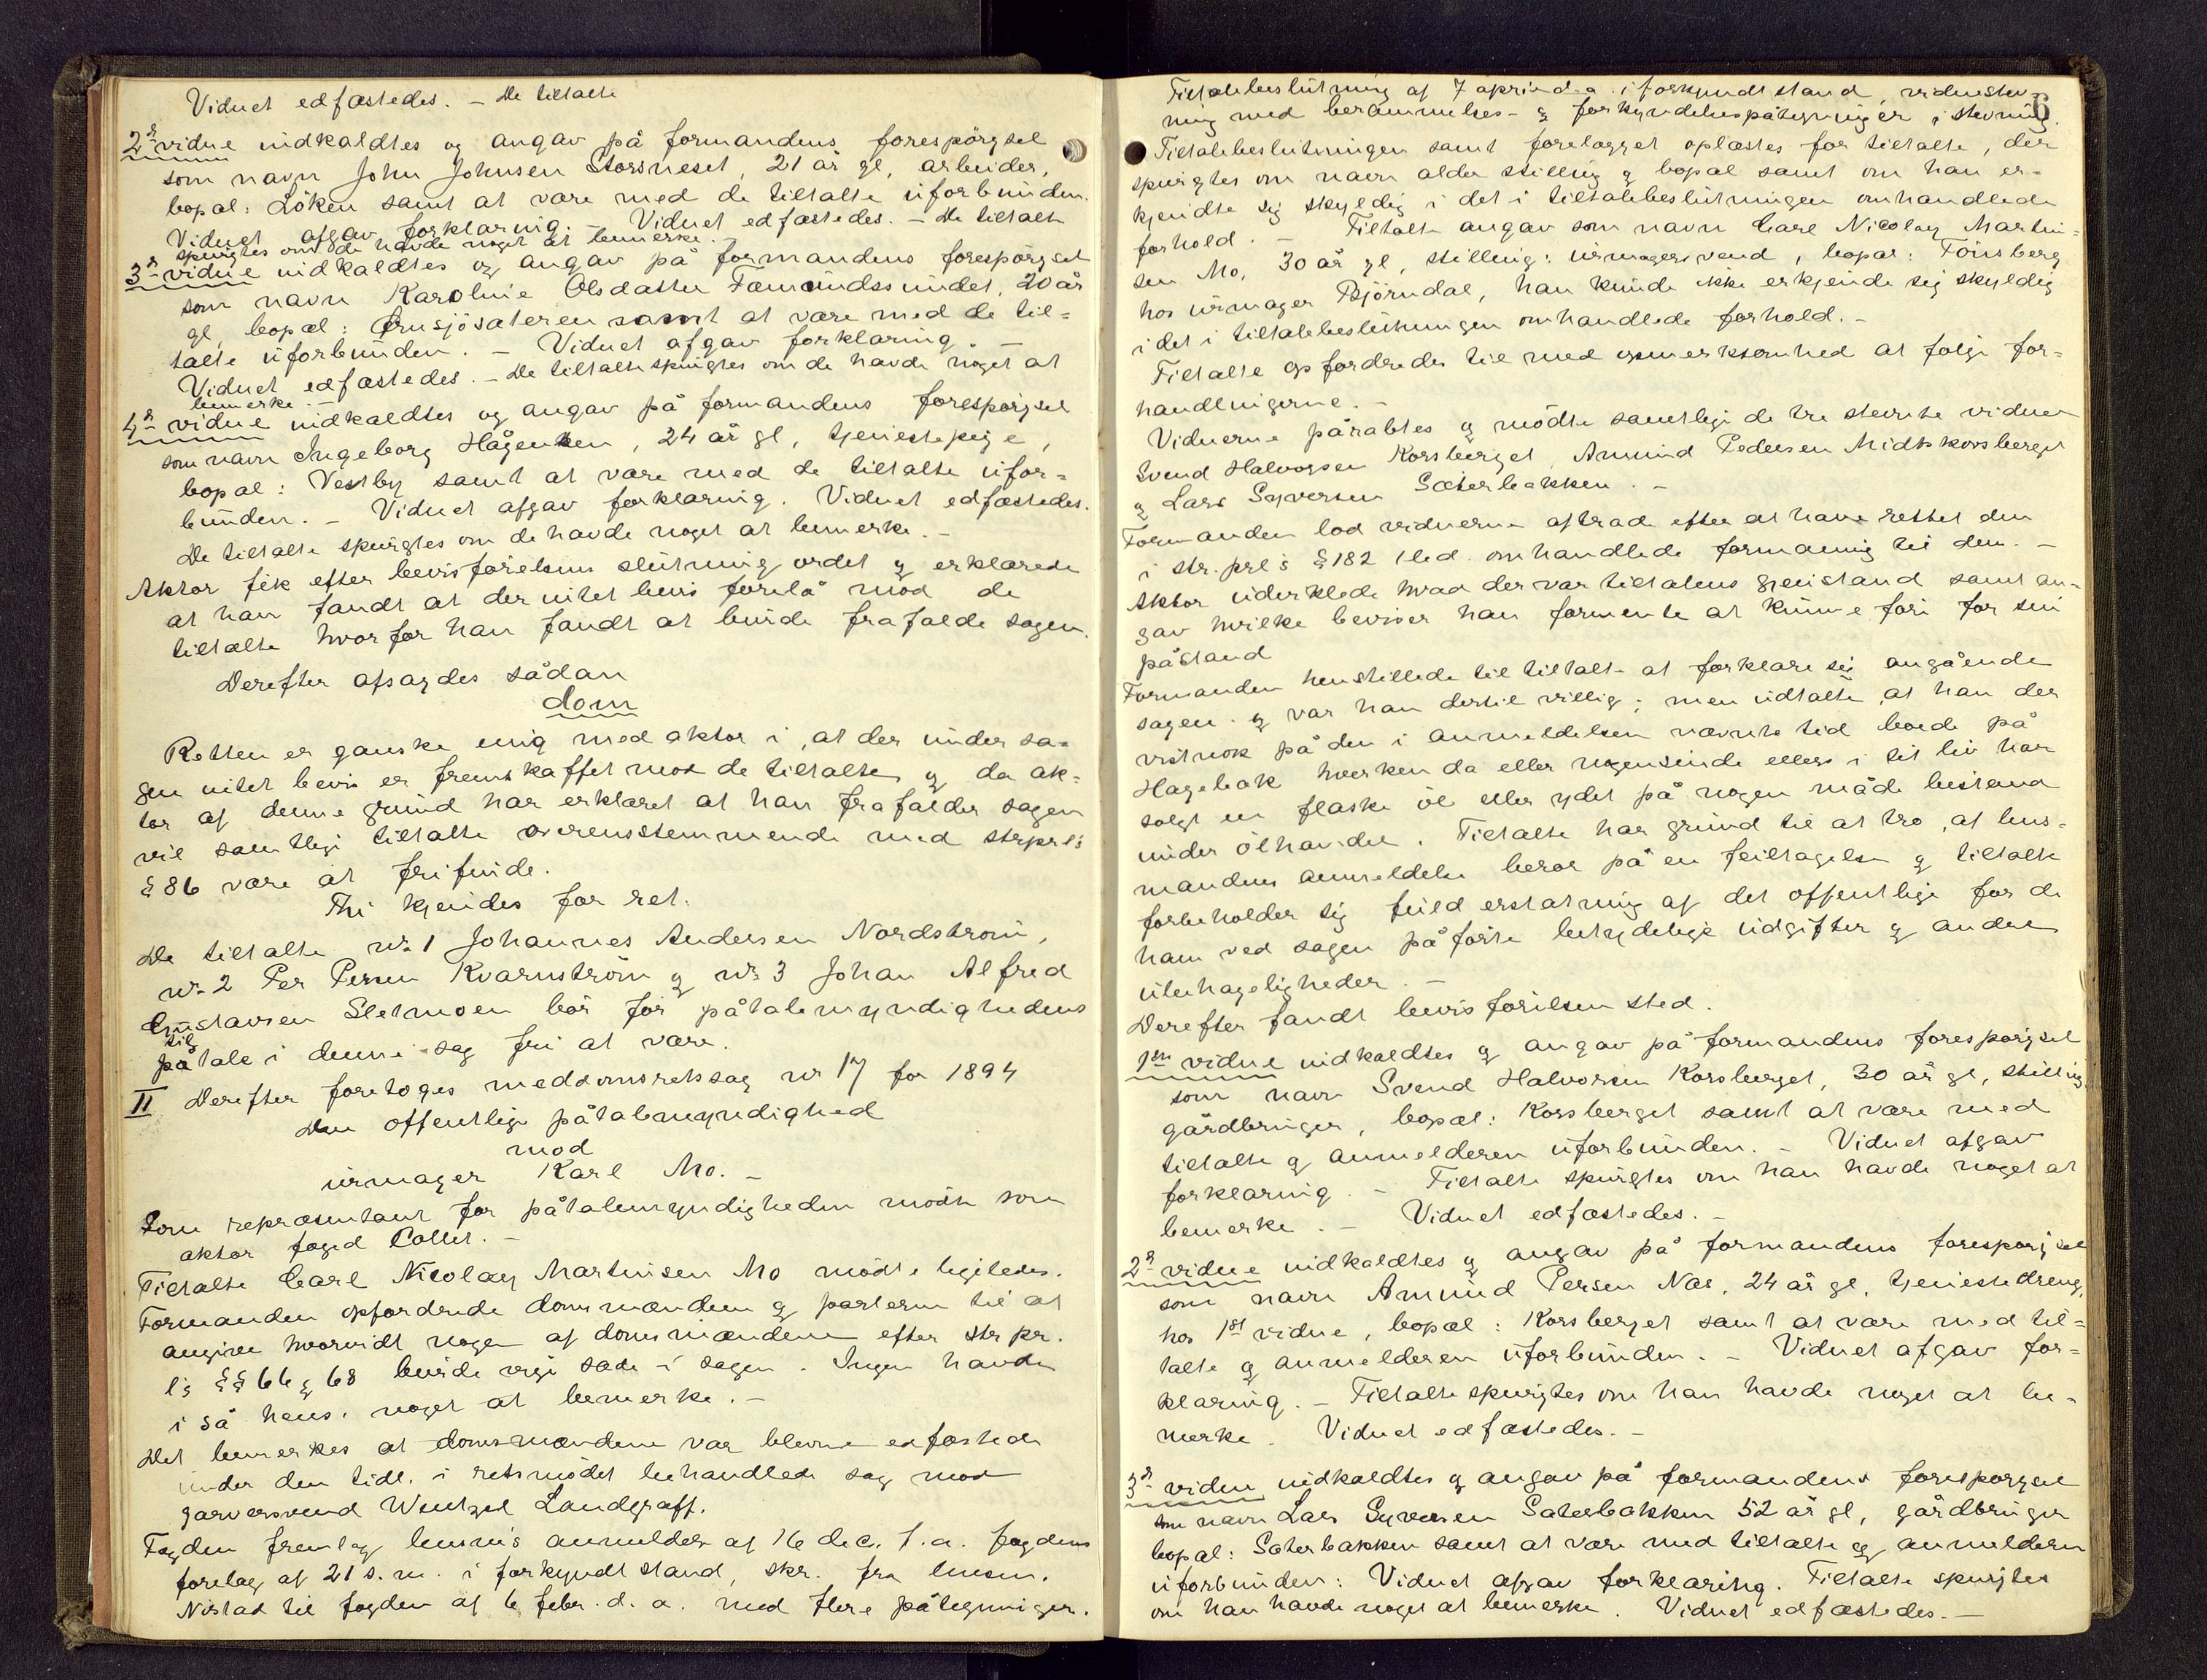 Vidnet edfæstedes. – De tiltalte
2det vidne indkaldtes og angav på formandens forespörgsel
som navn John Johnsen Storsneset, 21 år gl, arbeider,
bopæl: Löken samt at være med de tiltalte uforbunden.
Vidnet afgav forklaring. – Vidnet edfæstedes. – De tiltalte
spurgtes om de havde noget at bemerke. –
3de vidne indkaldtes og angav på formandens forespörgsel
som navn Karoline Olsdatter Fæmundssundet, 20 år
gl, bopæl: Ørusjösæteren samt at være med de til=
talte uforbunden. – Vidnet afgav forklaring. –
Vidnet edfæstedes. – De tiltalte spurgtes om de havde noget at
bemerke. –
4de vidne indkaldtes og angav på formandens forespörgsel
som navn Ingeborg Hågensen, 24 år gl, tjenestepige,
bopæl: Vestby samt at være med de tiltalte ufor=
bunden. – Vidnet afgav forklaring. Vidnet edfæstedes.
De tiltalte spurgtes om de havde noget at bemerke. –
Aktor fik efter bevisförelsens slutning ordet og erklærede
at han fandt at der intet bevis forelå mod de
tiltalte hvorfor han fandt at burde frafalde sagen.
Derefter afsagdes sådan
dom
Retten er ganske enig med aktor i, at der under sa=
gen intet bevis er fremskaffet mod de tiltalte og da ak=
tor af denne grund har erklæret at han frafalder sagen
vil samtlige tiltalte overensstemmende med strprls
§ 86 være at frifinde.
Thi kjendes for ret.
De tiltalte nr 1 Johannes Andersen Nordström,
nr 2 Per Persen Kvarnström og nr 3 Johan Alfred
Gustavsen Sletmoen bör for påtalemyndighedens
til
påtale i denne sag fri at være.
II Derefter foretoges meddomsretssag nr 17 for 1894
Den offentlige påtalemyndighed
mod
urmager Karl Mo. –
Som repræsentant for påtalemyndigheden mödte som
aktor foged Collet. –
Tiltalte Carl Nicolay Martinsen Mo mödte ligeledes.
Formanden opfordrede domsmændene og parterne til at
angive hvorvidt nogen af domsmændene efter str pr.
l's §§ 66 og 68 burde vige sæde i sagen. Ingen havde
i så hens. noget at bemerke. –
Det bemerkes at domsmændene var blevne edfæstede
under den tidl. i retsmödet behandlede sag mod
garversvend Wentzel Landgraff.
Fogden fremlag lensm's anmeldelse af 16 dec. f.a. fogdens
forelæg af 21 s. m. i forkyndt stand, skr. fra lensm.
Nistad til fogden af 6 febr. d. a. med flere påtegninger.
6
Tiltalebeslutning af 7 april d.a. i forkyndt stand, vidnestev=
ning med berammelses- og forkyndelsespåtegninger, stevning.
Tiltalebeslutningen samt forelægget oplæstes for tiltalte, der
spurgtes om navn alder stilling og bopæl samt om han er=
kjendte sig skyldig i det i tiltalebeslutningen omhandlede
forhold. – Tiltalte angav som navn Carl Nicolay Martin=
sen Mo, 30 år gl, stilling: urmagersvend, bopæl: Tönsberg
hos urmager Björndal, han kunde ikke erkjende sig skyldig
i det i tiltalebeslutningen omhandlede forhold. –
Tiltalte opfordredes til med opmerksomhed at fölge for=
handlingerne. –
Vidnerne påråbtes og mödte samtlige de tre stevnte vidner
Svend Halvorsen Korsberget, Amund Pedersen Midtskorsberget
og Lars Syversen Sæterbakken. –
Formanden lod vidnerne aftræde efter at have rettet den
i str. prl's § 182 1 led omhandlede formaning til dem. –
Aktor udviklede hvad der var tiltalens gjenstand samt an=
gav hvilke beviser han formente at kunne före for sin
påstand
Formanden henstillede til tiltalte at forklare sig angående
sagen og var han dertil villig; men udtalte, at han der
vistnok på den i anmeldelsen nævnte tid boede på
Hagebak hverken da eller nogensinde ellers i sit liv har
solgt en flaske öl eller ydet på nogen måde bistand
under ölhandel. Tiltalte har grund til at tro, at lens=
mandens anmeldelse beror på en feiltagelse og tiltalte
forbeholder sig fuld erstatning af det offentlige for de
ham ved sagen påförte betydelige udgifter og andre
ubehageligheder. –
Derefter fandt bevisförelsen sted.
1ste vidne indkaldtes og angav på formandens forespörgsel
som navn Svend Halvorsen Korsberget, 30 år gl, stilling
gårdbruger, bopæl: Korsberget samt at være med
tiltalte og anmelderen uforbunden. – Vidnet afgav
forklaring. – Tiltalte spurgtes om han havde noget at
bemerke. – Vidnet edfæstedes. –
2det vidne indkaldtes og angav på formandens forespörgsel
som navn Amund Persen Næs, 24 år gl, tjenestedreng,
hos 1st vidne, bopæl: Korsberget samt at være med til=
talte og anmelderen uforbunden. – Vidnet afgav for=
klaring. – Tiltalte spurgtes om han havde noget at be=
merke. Vidnet edfæstedes. –
3de vidne indkaldtes og angav på formandens forespörgsel
som navn Lars Syversen Sæterbakken 52 år gl, gårdbruger
bopæl: Sæterbakken samt at være med tiltalte og anmelderen
uforbunden: Vidnet afgav forklaring. Tiltalte spurgtes
om han havde noget at bemerke. Vidnet edfæstedes. –